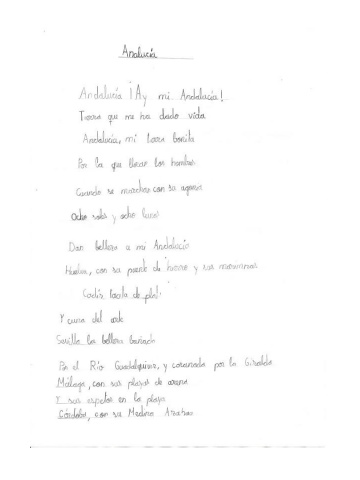 Analucía
Andalucía ¡Ay mi Andalucía!
Tierra que me ha dado vida
Andalucía, mi tierra bonita
Por la que lloran los hombres
Cuando se marchan con su agonía
Ocho soles y ocho lunas
Dan belleza a mi Andalucía
Huelva, con su puente de hierro y sus marismas
Cadiz, tacita de plata
Y cuna del arte
Sevilla la bellera bañada
Por el Río Guadalquivir, y coronada por la Giralda
Málaga, con sus playas de arena
Y sus espetos en la playa
Córdoba, con su Medina Azahara